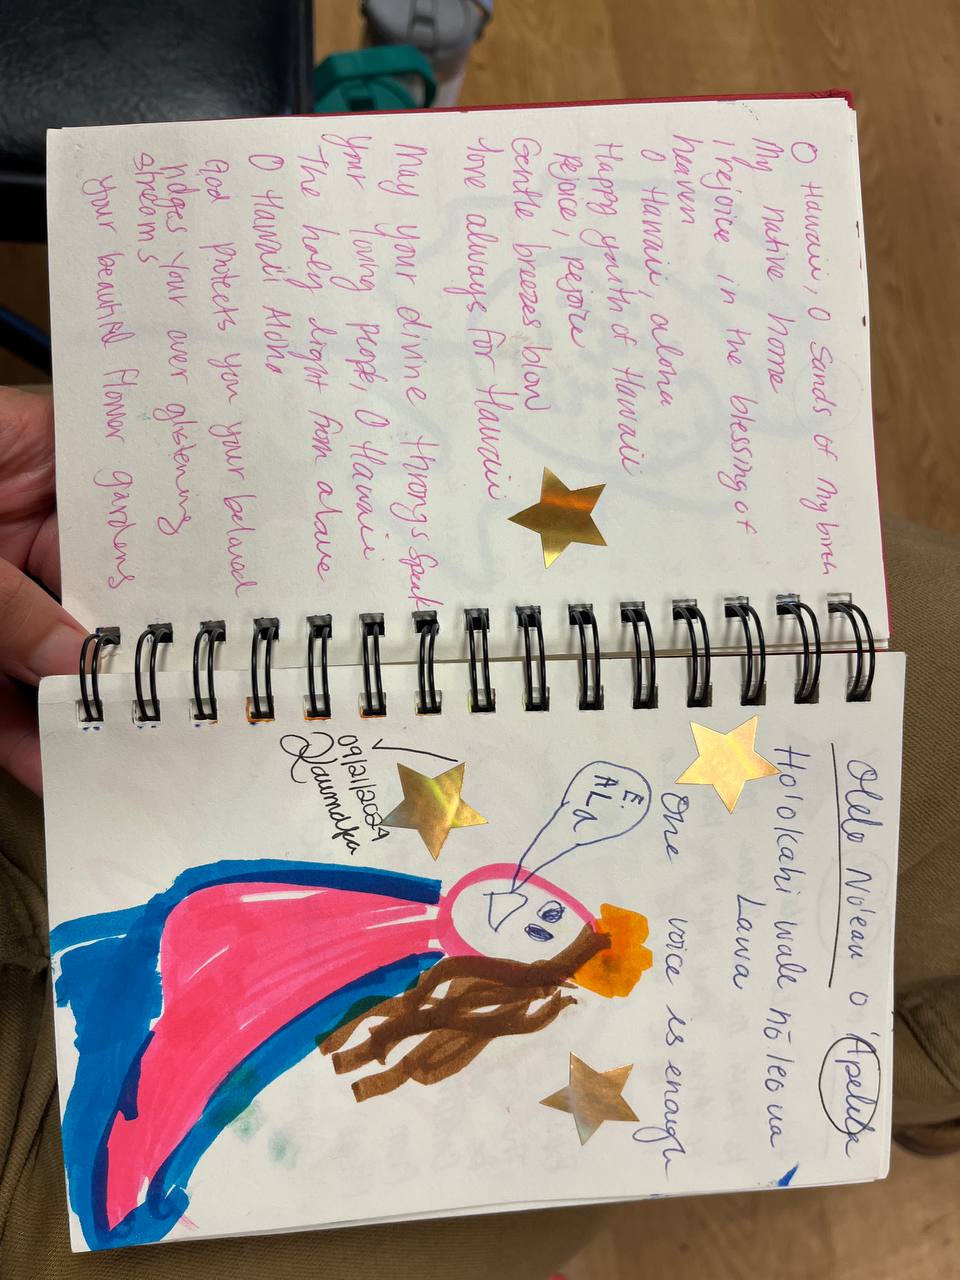 O Hawaii, O Sands of my birth
My native home
I rejoice in the blessing of
heaven
O Hawaii, aloha
Happy youth of Hawaii
Rejoice, rejoice
Gentle breezes blow
love always for Hawaii
May your divine throngs speak
your loving people, O Hawaii
The holy light from above
O Hawaii Aloha
God protects you your beloved
ridges your over glistening
streams
your beautiful flower gardens
Olelo No'eau o 'Apelila
Ho'okahi wale nō leo ua
Lawa
One voice is enough
E
ALA
09/21/2024